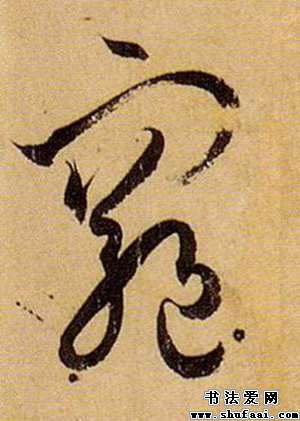 窮
书法爱网
www.shufaai.com